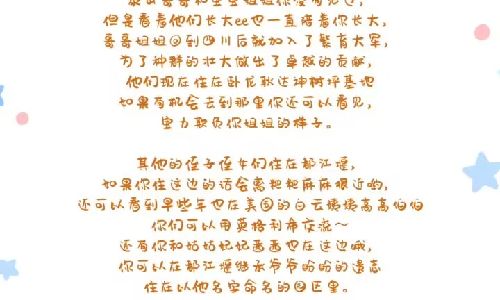 但是看着他们长大ee也一直陪着你长大，
哥哥姐姐回到四川后就加入了繁育大军，
为了种群的壮大做出了卓越的贡献，
他们现在住在卧龙耿达神树坪基地
如果有机会去到那里你还可以看见，
里力欺负你姐姐的样子。
其他的侄子侄女们住在都江堰，
如果你住这边的话会离粑粑麻麻很近哟，
还可以看到早些年也在美国的白云姨姨高高伯伯
你们可以用英格利希交流～
还有你和姑姑妃妃画画也在这边哦，
你可以在都江堰继承爷爷盼盼的遗志
住在以他名字命名的园区里。